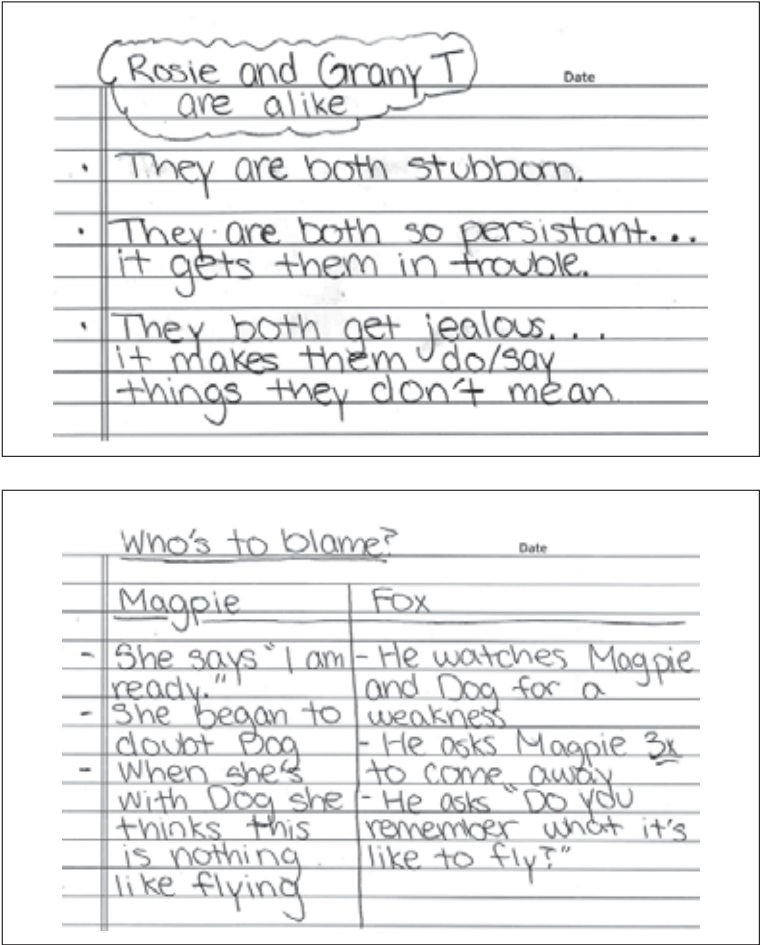 Rosie and Grany T
Date
are alike
· They are both stubborn.
· They are both so persistant...
it gets them in trouble.
· They both get jealous...
it makes them do/say
things they don't mean.
Who's to blame?
Date
Magpie
- She says "I am
ready."
- She began to
doubt Dog
- When she's
with Dog she
thinks this
is nothing
like flying
Fox
- He watches Magpie
and Dog for a
weakness
- He asks Magpie 3x
to come away
- He asks "Do you
remember what it's
like to fly?"